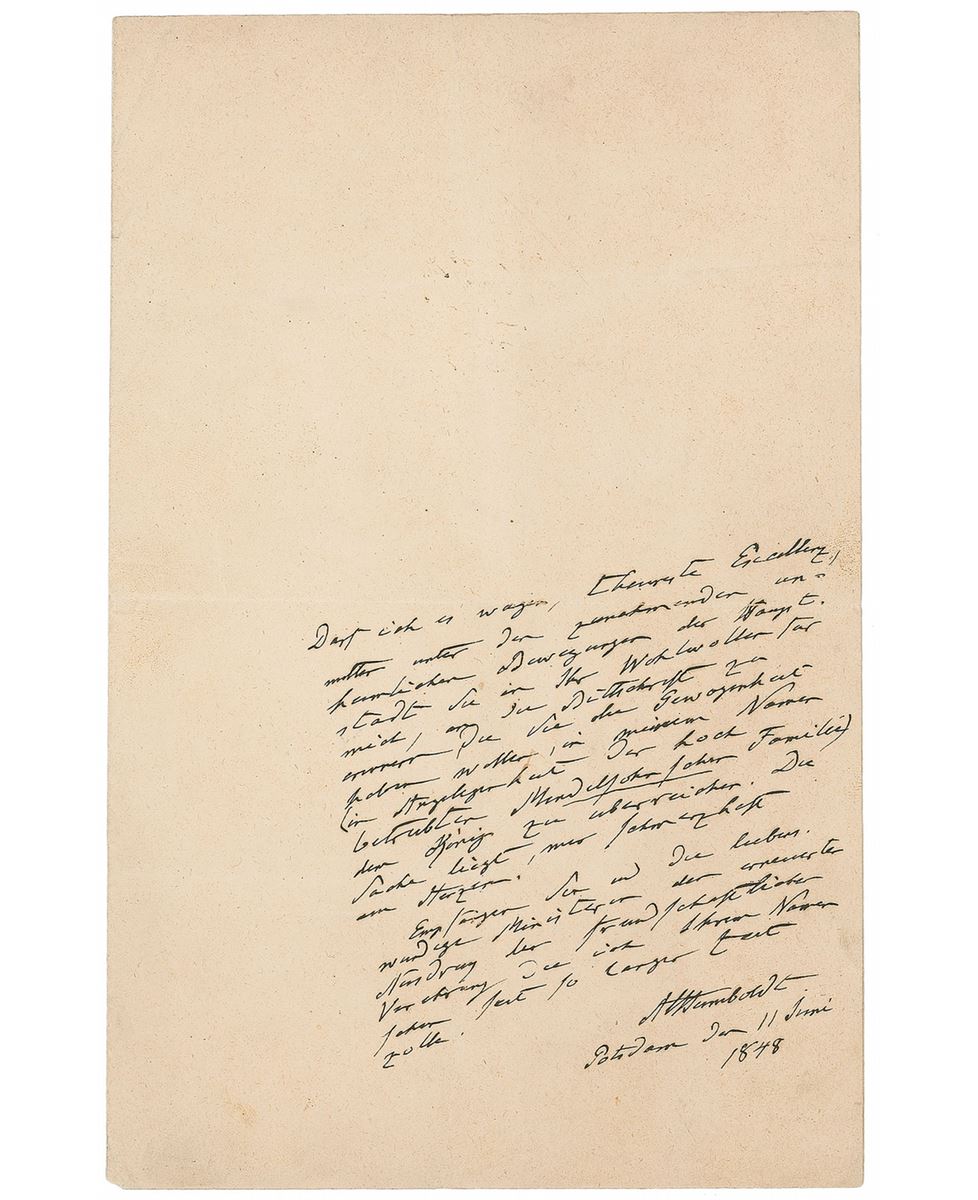 Darf ich es wagen, theureste Excellenz,
mitten unter den zunehmenden un=
heimlichen Bewegungen der Haupt-
stadt Sie in Ihr Wohlwollen für
mich, an die Bittschrift zu
erinnern die Sie die Gewogenheit
haben wollten, in meinem Namen
(in Angelegenheit der hoch
betrübten Mendelssohnschen Familie)
dem König zu überreichen. Die
Sache liegt, mir schmerzhaft
am Herzen.
Empfangen Sie und die liebens-
würdige Ministerin den erneuerten
Ausdruck der freundschaftlichen
Verehrung die ich Ihrem Namen
schon seit so langer Zeit
zolle.
AvHumboldt
Potsdam den 11 Juni
1848